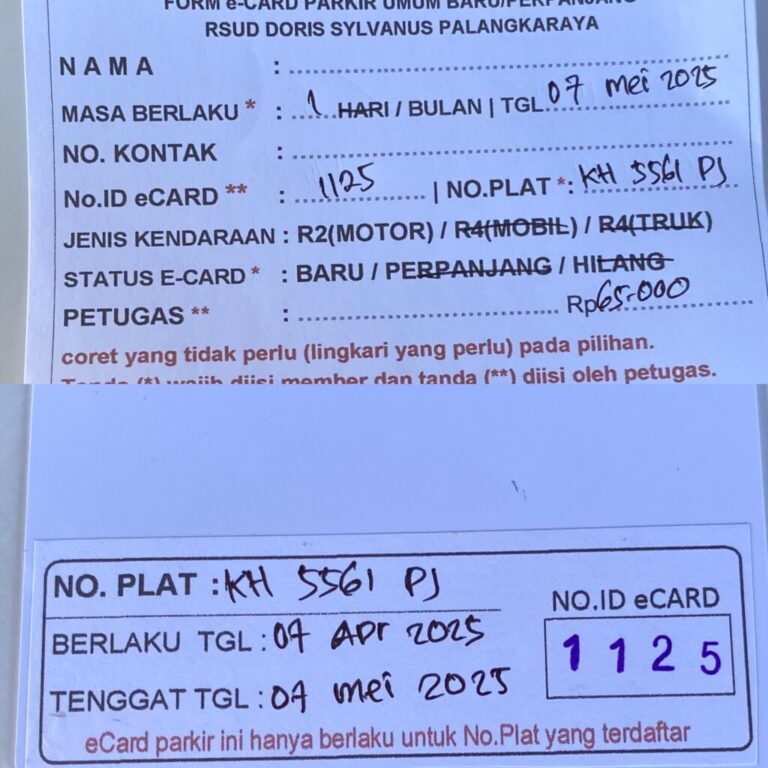 FORM e-CARD PARKIR UMUM BARU/PERPANJANG
RSUD DORIS SYLVANUS PALANGKARAYA
NAMA :
MASA BERLAKU * : 1 HARI / BULAN | TGL 07 mei 2025
NO. KONTAK :
No.ID eCARD ** : 1125 | NO.PLAT *: KH 5561 PJ
JENIS KENDARAAN : R2(MOTOR) / R4(MOBIL) / R4(TRUK)
STATUS E-CARD * : BARU / PERPANJANG / HILANG
PETUGAS ** : Rp65.000
coret yang tidak perlu (lingkari yang perlu) pada pilihan.
Tanda (*) wajib diisi member dan tanda (**) diisi oleh petugas.
NO. PLAT : KH 5561 PJ
BERLAKU TGL : 07 Apr 2025
TENGGAT TGL : 07 mei 2025
NO.ID eCARD
1125
eCard parkir ini hanya berlaku untuk No.Plat yang terdaftar